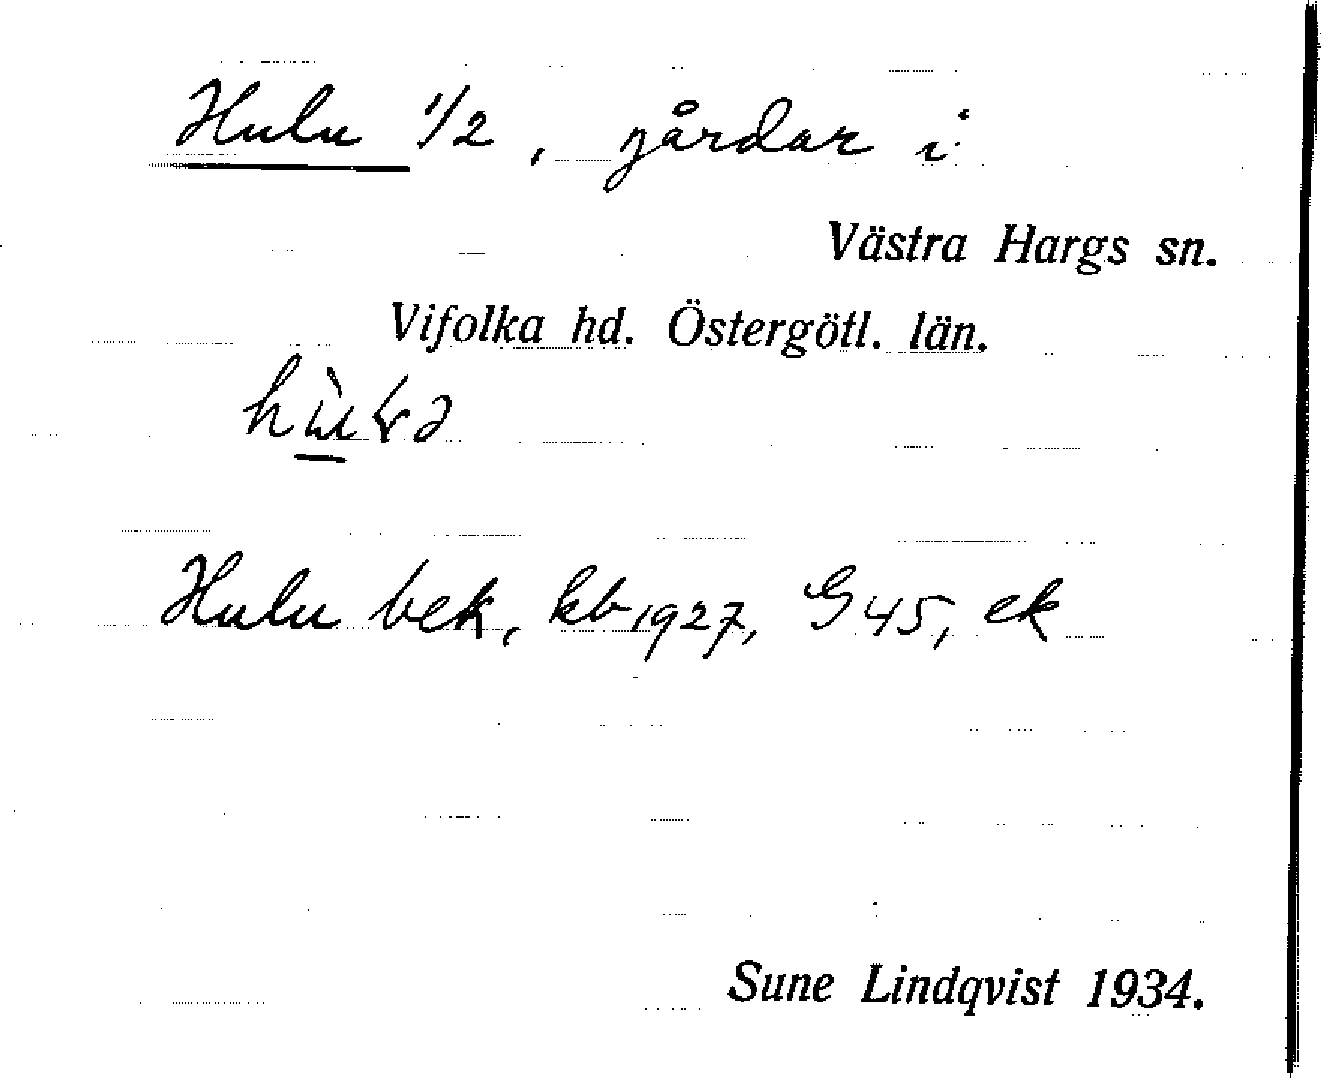 Hulu 1/2, gårdar i
Västra Hargs sn.
Vifolka hd. Östergötl. län.
Hulu bek, kb 1927, G 45, ek
Sune Lindqvist 1934.